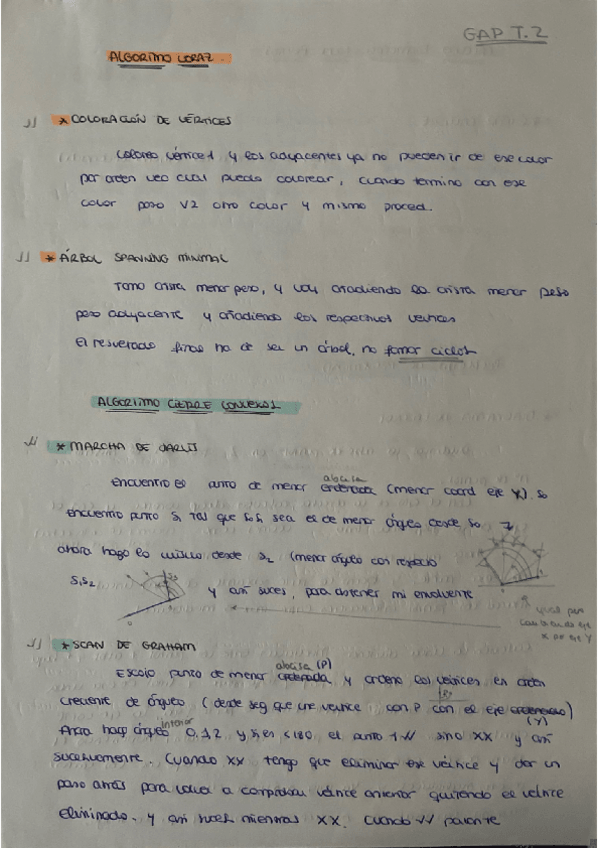 GAP T.2
ALGORITMO VORAZ.
* COLORACIÓN DE VÉRTICES
Coloreo vértice 1 y los adyacentes ya no pueden ir de ese color
por orden veo cual puedo colorear, cuando termino con ese
color paso V2 otro color y mismo proced.
* ÁRBOL SPANNING MINIMAL
Tomo arista menor peso, y voy añadiendo la arista menor peso
pero adyacente y añadiendo los respectivos vértices
El resultado final ha de ser un árbol, no formar ciclos
ALGORITMO CIERRE CONVEXO
* MARCHA DE JARVIS
abcisa
Encuentro el punto de menor ordenada (menor coord eje X). So
encuentro punto S1 tal que S0S1 sea el de menor ángulo desde S0
ahora hago lo mismo desde S2 (menor ángulo con respecto
S1S2 y así suces, para obtener mi envolvente
igual pero
cambiando eje
X por eje Y
* SCAN DE GRAHAM
abcisa (P)
Escojo punto de menor ordenada y ordeno los vértices en orden
creciente de ángulo (desde seg que une vértice con P con el eje ordenadas)
(Y)
interior
Ahora hago ángulo 0,1,2 y si es <180 el punto 1 √√ sino XX y así
sucesivamente. Cuando XX tengo que eliminar ese vértice y dar un
paso atrás para volver a comprobar vértice anterior quitando el vértice
eliminado. y así mientras XX. Cuando √√ palante